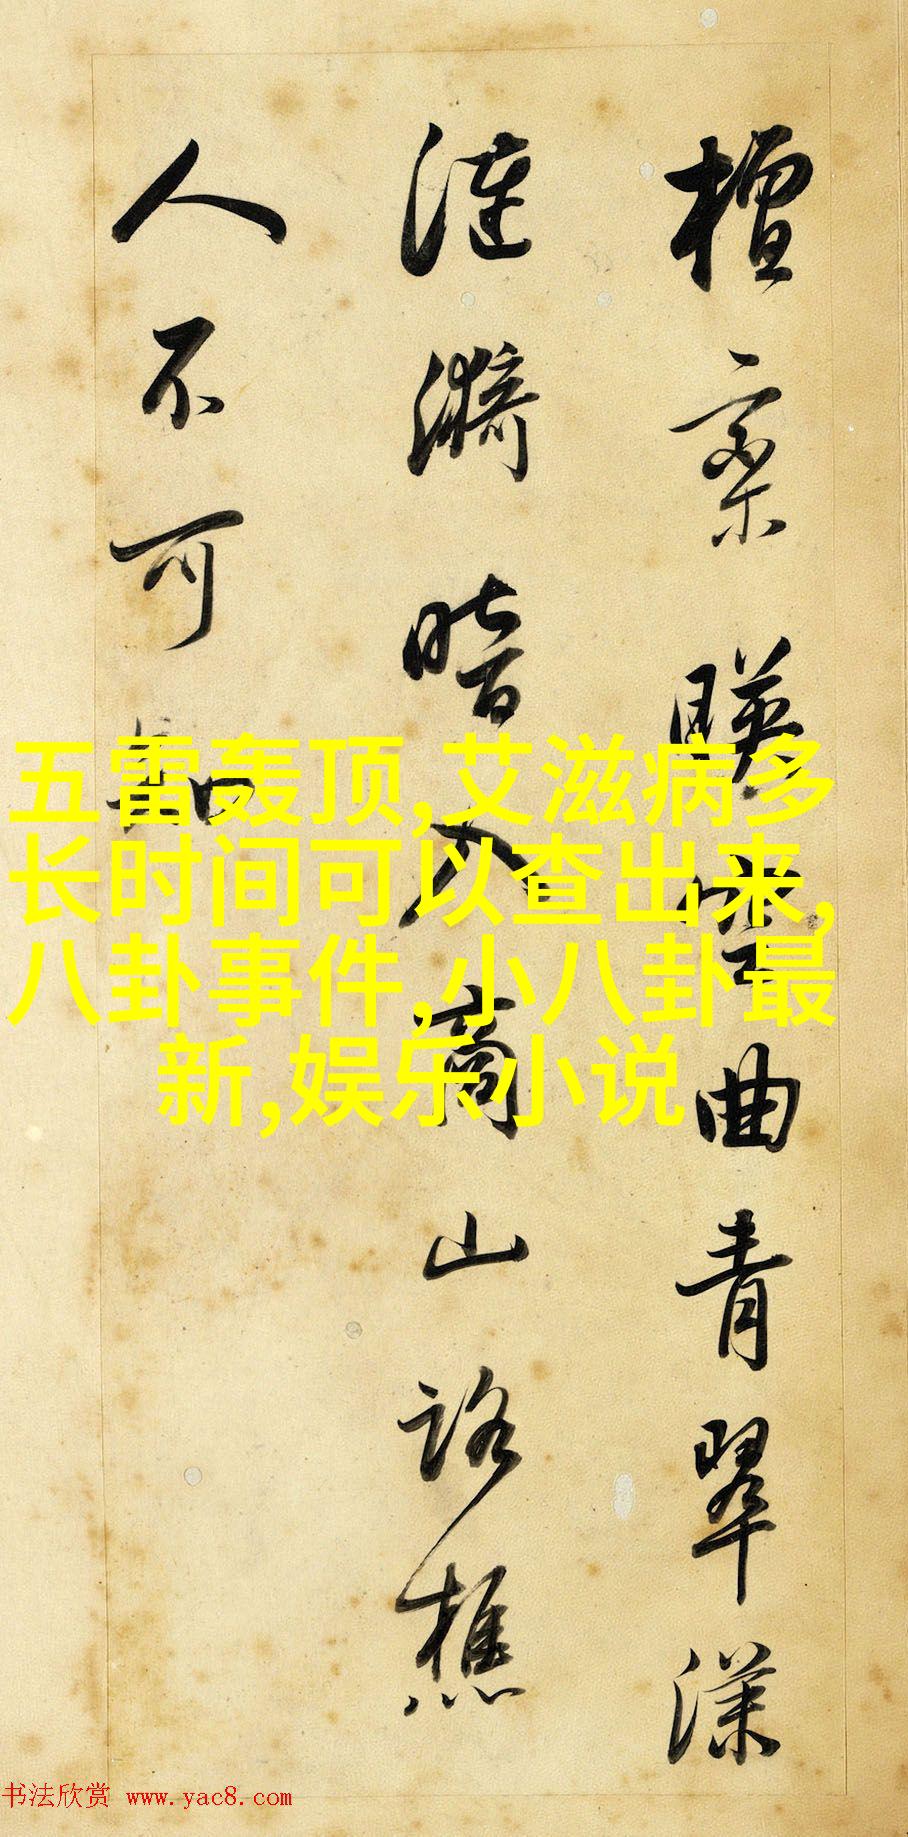 檀欒暎空曲青翠漾
漣漪暗入商山路樵
人不可知
五雷轰顶,艾滋病多
长时间可以查出来,
八卦事件,小八卦最
新,娱乐小说
书法欣赏 www.yac8.com